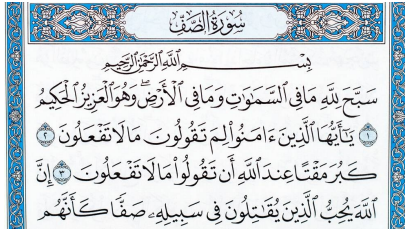 سُورَةُ الصَّفِّ
بِسْمِ ٱللَّهِ ٱلرَّحْمَٰنِ ٱلرَّحِيمِ
سَبَّحَ لِلَّهِ مَا فِي ٱلسَّمَٰوَٰتِ وَمَا فِي ٱلْأَرْضِۖ وَهُوَ ٱلْعَزِيزُ ٱلْحَكِيمُ
١ يَٰٓأَيُّهَا ٱلَّذِينَ ءَامَنُوا۟ لِمَ تَقُولُونَ مَا لَا تَفْعَلُونَ ٢
كَبُرَ مَقْتًا عِندَ ٱللَّهِ أَن تَقُولُوا۟ مَا لَا تَفْعَلُونَ ٣ إِنَّ
ٱللَّهَ يُحِبُّ ٱلَّذِينَ يُقَٰتِلُونَ فِي سَبِيلِهِۦ صَفًّا كَأَنَّهُم